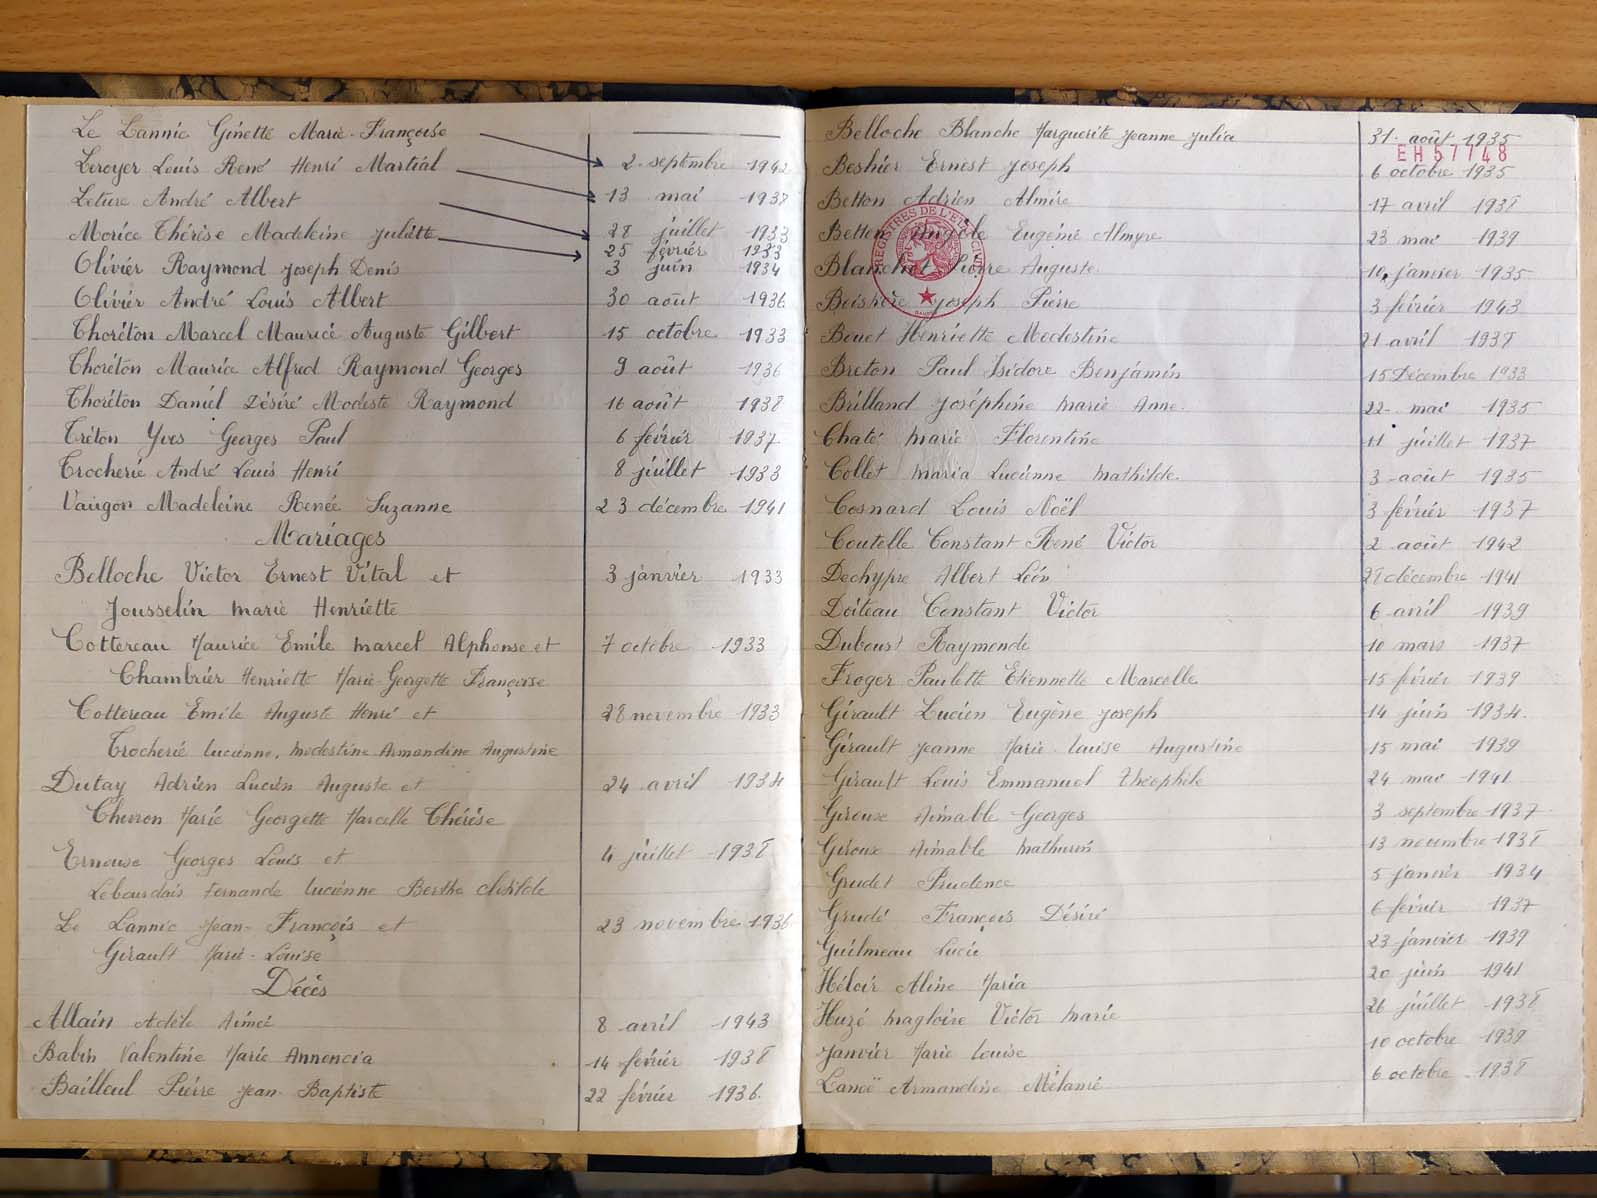 Le Lannic Ginette Marie-Françoise
Leroyer Louis René Henri Martial 2 septembre 1942
Leture André Albert 13 mai 1938
Morice Thérèse Madeleine Juliette 28 juillet 1933
25 février 1933
Olivier Raymond Joseph Denis 3 juin 1934
Olivier André Louis Albert 30 août 1936
Thoréton Marcel Maurice Auguste Gilbert 15 octobre 1933
Thoréton Maurice Alfred Raymond Georges 9 août 1936
Thoréton Daniel Désiré Modeste Raymond 16 août 1938
Tréton Yves Georges Paul 6 février 1937
Trocherie André Louis Henri 8 juillet 1933
Vaugon Madeleine Renée Suzanne 23 décembre 1941
Mariages
Belloche Victor Ernest Vital et 3 janvier 1933
Jousselin Marie Henriette
Cottereau Maurice Emile Marcel Alphonse et 7 octobre 1933
Chambrier Henriette Marie-Georgette Françoise
Cottereau Emile Auguste Henri et 28 novembre 1933
Trocherie Lucienne, Modestine Armandine Augustine
Dutay Adrien Lucien Auguste et 24 avril 1934
Chevron Marie Georgette Marcelle Thérèse
Erneuse Georges Louis et 4 juillet 1938
Lebourdais Fernande Lucienne Berthe Clotilde
Le Lannic Jean-François et 23 novembre 1936
Girault Marie-Louise
Décès
Allain Adèle Aimée 8 avril 1943
Babin Valentine Marie Annoncia 14 février 1938
Bailleul Pierre Jean-Baptiste 22 février 1936.
Belloche Blanche Marguerite Jeanne Julia 31 août 1935
EH57748
Beshier Ernest Joseph 6 octobre 1935
Betton Adrien Almire 17 avril 1938
REGISTRES DE L'ETAT CIVIL
Betton Angèle Eugénie Almyre 23 mai 1939
Blanchot Pierre Auguste 10 janvier 1935
Joseph Pierre 3 février 1943
Bouet Henriette Modestine 21 avril 1938
Breton Paul Isidore Benjamin 15 Décembre 1933
Brilland Joséphine Marie Anne. 22 mai 1935
Chaté Marie Florentine 11 juillet 1937
Collet Maria Lucienne Mathilde 3 août 1935
Cosnard Louis Noël 3 février 1937
Coutelle Constant René Victor 2 août 1942
Dechypre Albert Léon 28 décembre 1941
Doiteau Constant Victor 6 avril 1939
Duboust Raymonde 10 mars 1937
Froger Paulette Etiennette Marcelle 15 février 1939
Girault Lucien Eugène Joseph 14 juin 1934.
Girault Jeanne Marie-Louise Augustine 15 mai 1939
Girault Louis Emmanuel Théophile 24 mai 1941
Giroux Aimable Georges 3 septembre 1937
Giroux Aimable Mathurin 13 novembre 1938
Grudet Prudence 5 janvier 1934
Grudé François Désiré 6 février 1937
Guilmeau Lucie 23 janvier 1939
Héloir Aline Maria 20 juin 1941
Huzé Magloire Victor Marie 26 juillet 1938
Janvier Marie Louise 10 octobre 1939
Lanoë Armandine Mélanie 6 octobre 1938